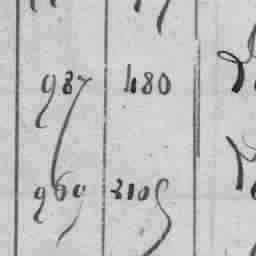 987 480
969 2105